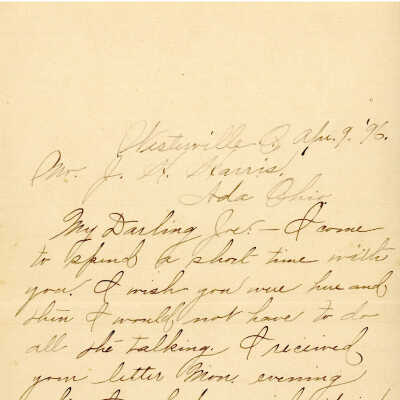 Westyville O. Apr. 9, '96.
Mr. J. H. Harris,
Ada Ohio.
My Darling Joe: — I come
to spend a short time with
you. I wish you were here and
then I would not have to do
all the talking. I received
your letter Mon. evening